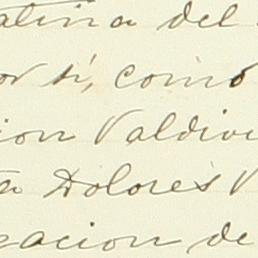 atina del
or sí, como
ion Valdivi
ta Dolores V
eacion de